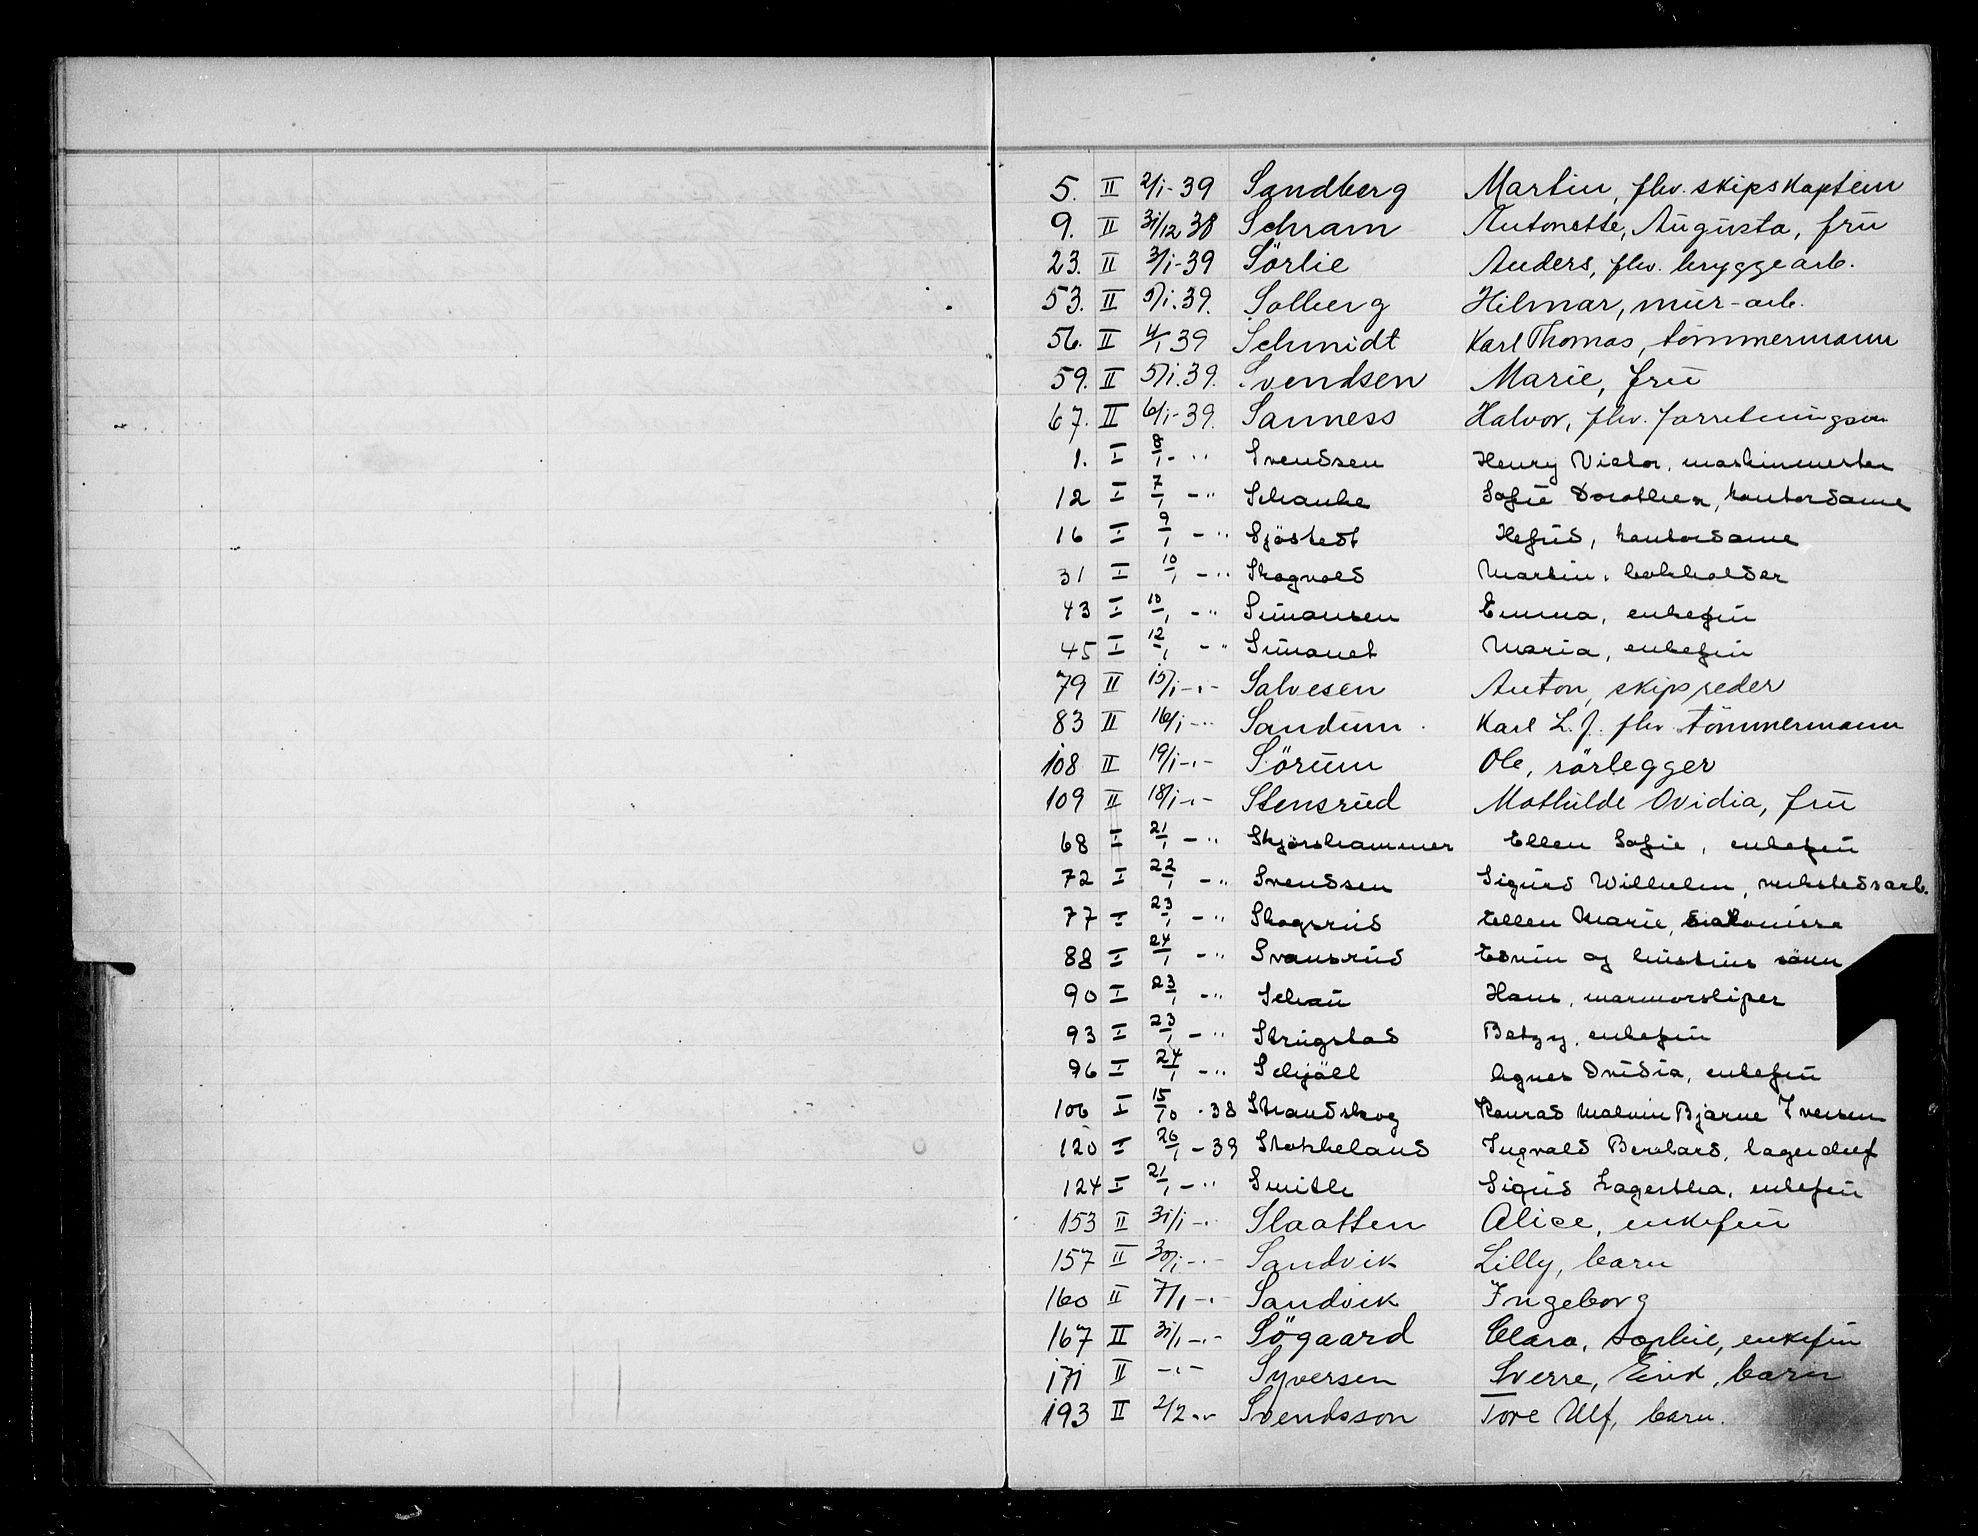 5. II 2/1-39 Sandberg Martin, fhv. skipskaptein
9. II 31/12 38 Schram Antonette, Augusta, frü
23. II 3/1-39 Sörlie Anders, fhv. bryggearb.
53. II 5/1.39. Solberg Hilmar, mür-arb.
56. II 4/1 39 Schmidt Karl Thomas, tömmermann
59. II 5/1.39. Svendsen Marie, frü
67. II 6/1-39. Sanness Halvor, fhv. forretningsm.
1. I 8/1 - " Svendsen Henry Victor, maskinmester
12 I 7/1 - " Schanke Sofie Dorothea, kontordame
16 I 9/1 - " Sjöstedt kontordame
31 I 10/1 - " Skogvold Martin, bokholder
43 I 10/1 - " Simonsen Emma, enkefrü
45 I 12/1 - " Simonet Maria, enkefrü
79 II 15/1 -"- Salvesen Anton, skipsreder
83 II 16/1 -" Sandum Karl L. J. fhv. tömmermann
108 II 19/1 -"- Sörüm Ole, rörlegger
109 II 18/1 -"- Stensrüd Mathilde Ovidia, frü
68 I 21/1 - " Skjörshammer Ellen Sofie, enkefrü
72 I 22/1 - " Svendsen Sigürd Wilhelm, verkstedsarb.
77 I 23/1 - " Skogsrüd Ellen Marie, diakonisse
88 I 24/1 - " Svansrüd Edvin og hüstrüs sönn
90 I 23/1 - " Schaü Hans, marmorsliper
93 I 23/1 - " Strügstad Betzy, enkefrü
96 I 24/1 - " Schjöll Agnes Ovidia, enkefrü
106 I 15/10 - 38 Strandskog Konrad Malvin Bjarne Iversen
120 I 26/1 - 39 Stokkeland Ingvald Bernhard, lagerchef
124 I 21/1 - " Smith Sigrid Lagertha, enkefrü
153 II 31/1 -" Slaatten Alice, enkefrü
157 II 30/1 -"- Sandvik Lilly, barn
160 II 7/1 -" Sandvik Ingeborg
167 II 31/1 -"- Sögaard Clara, Sophie, enkefrü
171 II -"- Syversen Sverre, Eind, barn
193 II 2/2 -"- Svendsson Tore Ulf, barn.